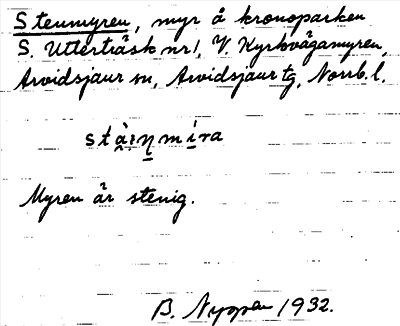 Stenmyren, myr å kronoparken
S. Utterträsk nr 1, V. Kyrkvägamyren,
Arvidsjaur sn, Arvidsjaur tg, Norrb. l.
Myren är stenig.
B. Nyppen 1932.